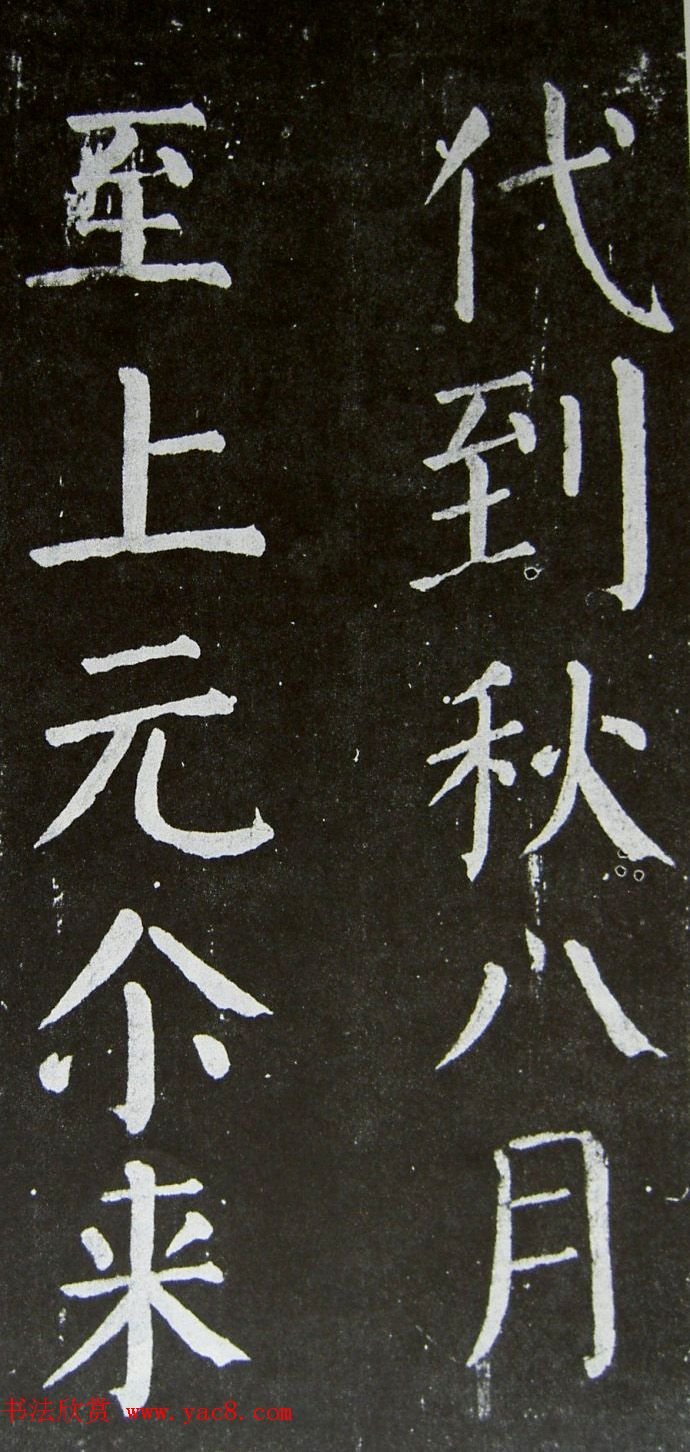 代到秋八月
至上元尒来
书法欣赏 www.yac8.com